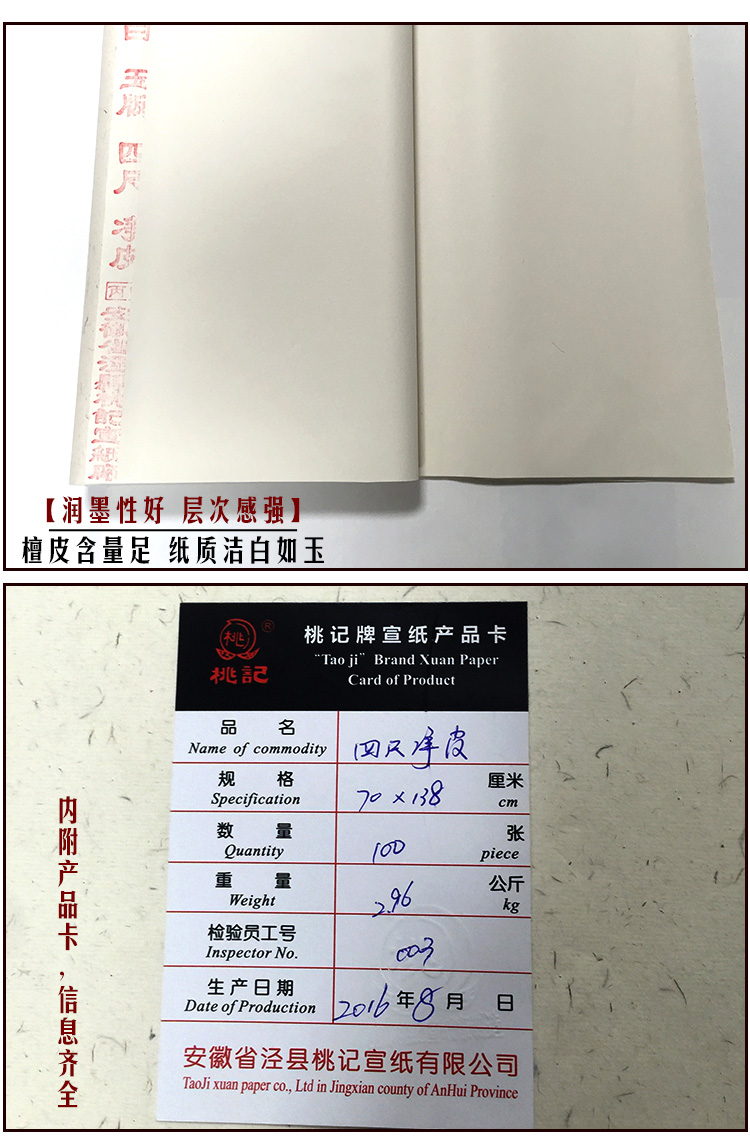 白
玉
版
四
尺
净
皮
丙
安徽省泾县桃記宣紙
【润墨性好 层次感强】
檀皮含量足 纸质洁白如玉
内附产品卡，信息齐全
桃
®
桃記
桃记牌宣纸产品卡
"Tao ji" Brand Xuan Paper
Card of Product
品 名
Name of commodity
四尺净皮
规 格
Specification
70 × 138
厘米
cm
数 量
Quantity
100
张
piece
重 量
Weight
2.96
公斤
kg
检验员工号
Inspector No.
003
生产日期
Date of Production
2016年8月 日
安徽省泾县桃记宣纸有限公司
TaoJi xuan paper co., Ltd in Jingxian county of AnHui Province